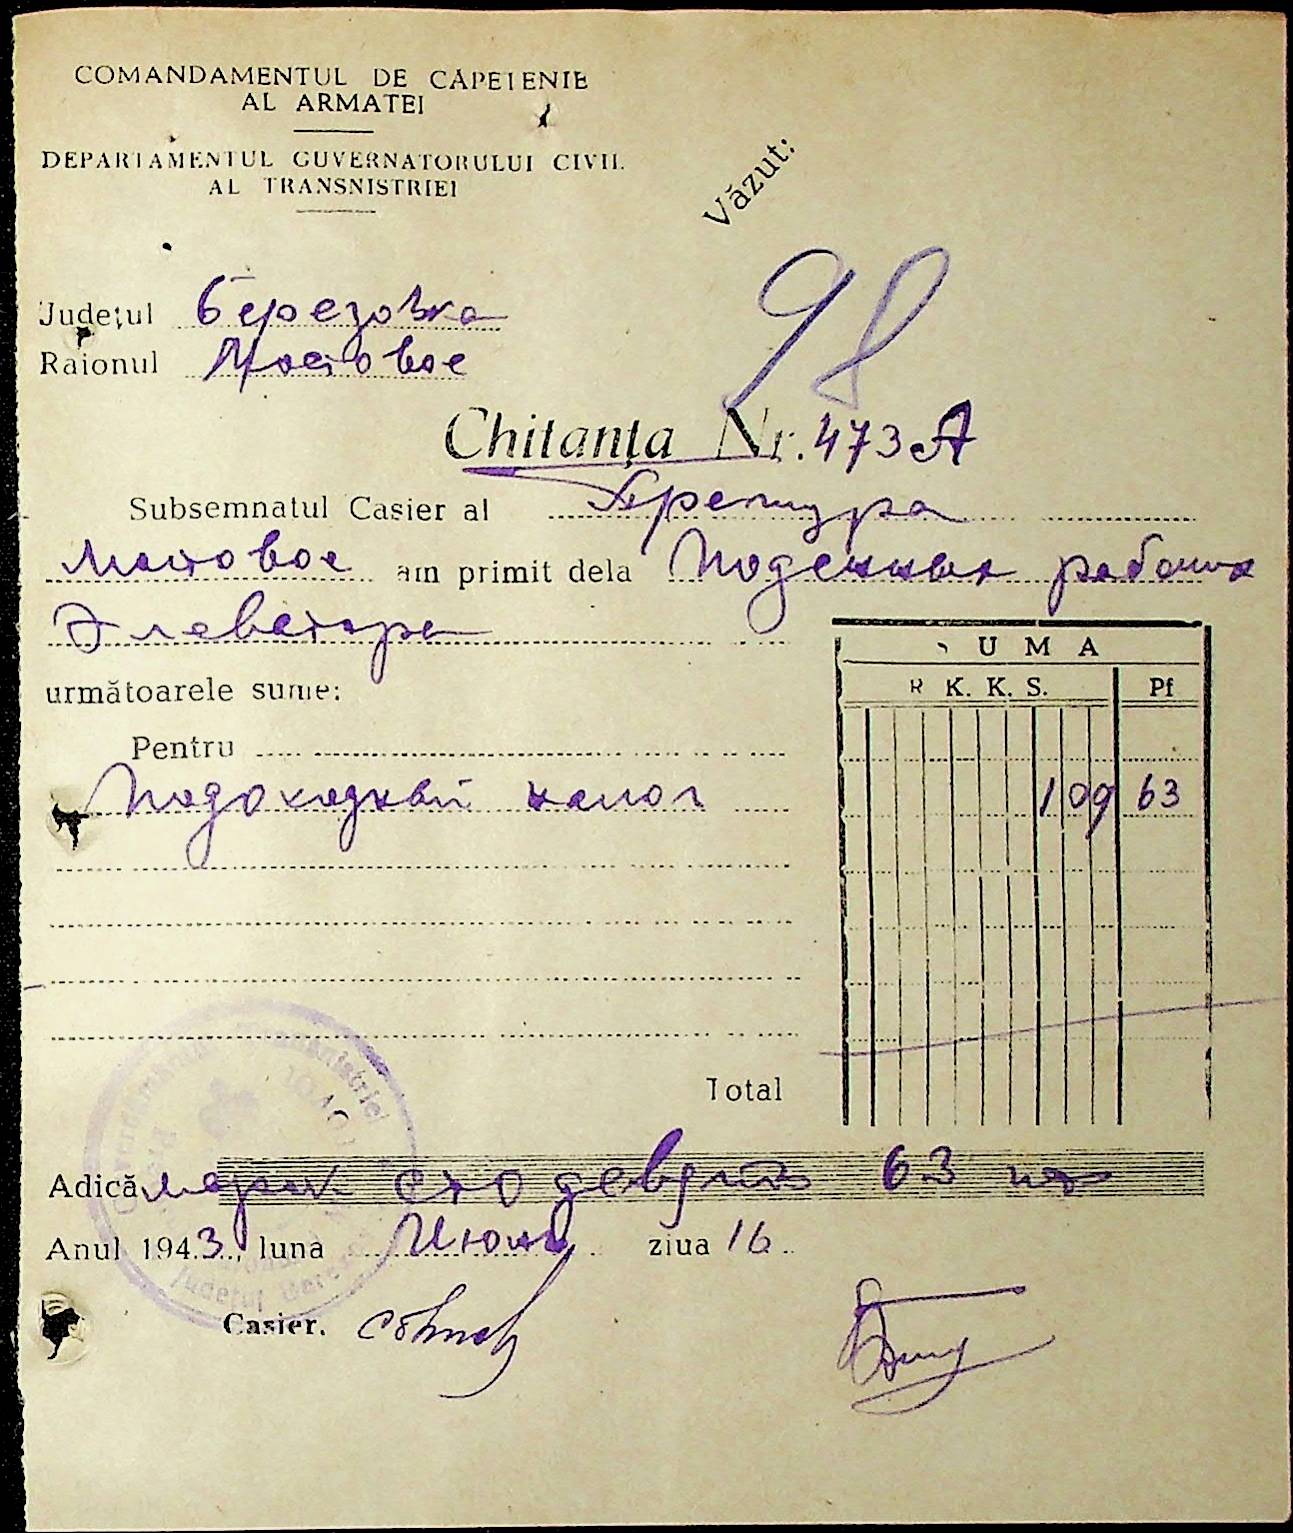 COMANDAMENTUL DE CAPETENIE
AL ARMATEI
DEPARTAMENTUL GUVERNATORULUI CIVIL
AL TRANSNISTRIEI
Văzut:
98
Județul Березовка
Raionul Мостовое
Chitanța Nr. 473 А
Subsemnatul Casier al Претура
Мостовое am primit dela Поденных рабочих
Элеватора
următoarele sume:
UMA
R K. K. S. Pf
Pentru
Подоходный налог 109 63
Total
Adică марок сто девять 63 пф
Anul 1943, luna Июнь ziua 16
Casier.
Județul